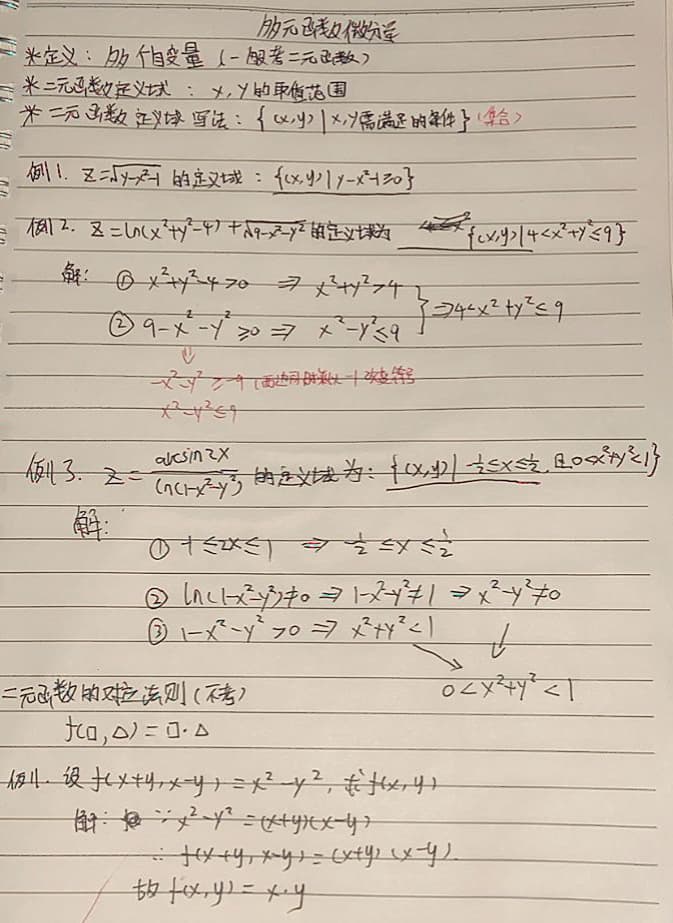 多元函数微分学
*定义：多个自变量（一般考二元函数）
*二元函数定义域：x,y的取值范围
*二元函数定义域写法：{(x,y)|x,y需满足的条件}（集合）
例1. z=√(y-x²-1) 的定义域：{(x,y)|y-x²-1≥0}
例2. z=ln(x²+y²-4)+√(9-x²-y²) 的定义域为 {(x,y)|4<x²+y²≤9}
解：① x²+y²-4>0 ⇒ x²+y²>4
② 9-x²-y²≥0 ⇒ x²-y²≤9 } ⇒4<x²+y²≤9
⇓
-x²-y²≥-9（两边同时乘以-1 改变符号
x²-y²≤9
例3. z=arcsin2x/ln(1-x²-y²) 的定义域为：{(x,y)|-1/2≤x≤1/2,且0<x²+y²<1}
解：
① -1≤2x≤1 ⇒ -1/2≤x≤1/2
② ln(1-x²-y²)≠0 ⇒ 1-x²-y²≠1 ⇒ x²-y²≠0
③ 1-x²-y²>0 ⇒ x²+y²<1
0<x²+y²<1
二元函数的对应法则（不考）
f(□,△)=□·△
例1. 设f(x+y,x-y)=x²-y²,求f(x,y)
解：∵x²-y²=(x+y)(x-y)
∴f(x+y,x-y)=(x+y)(x-y).
故f(x,y)=x·y